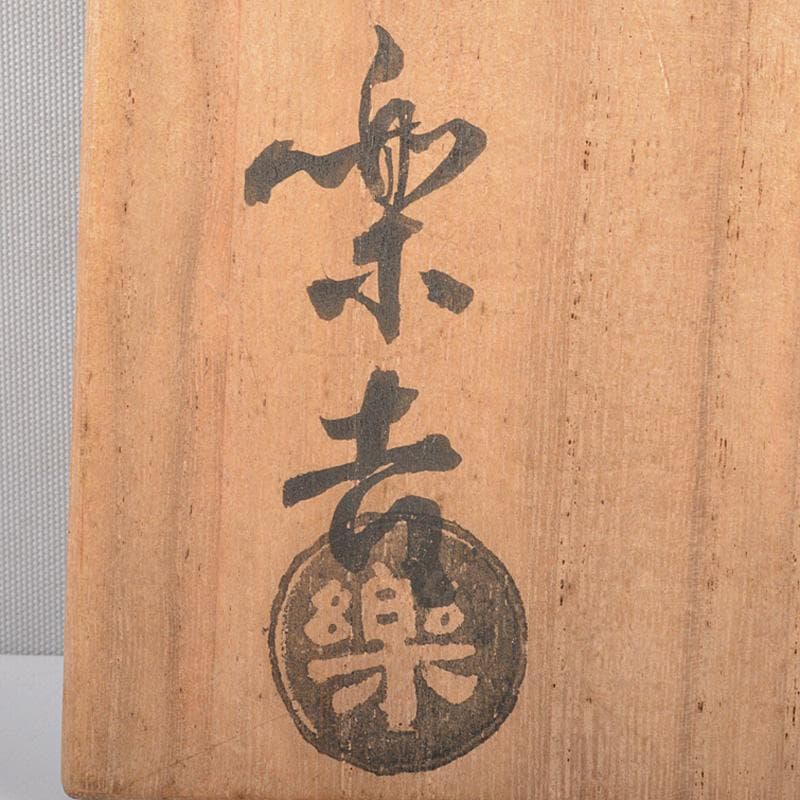 楽吉
樂